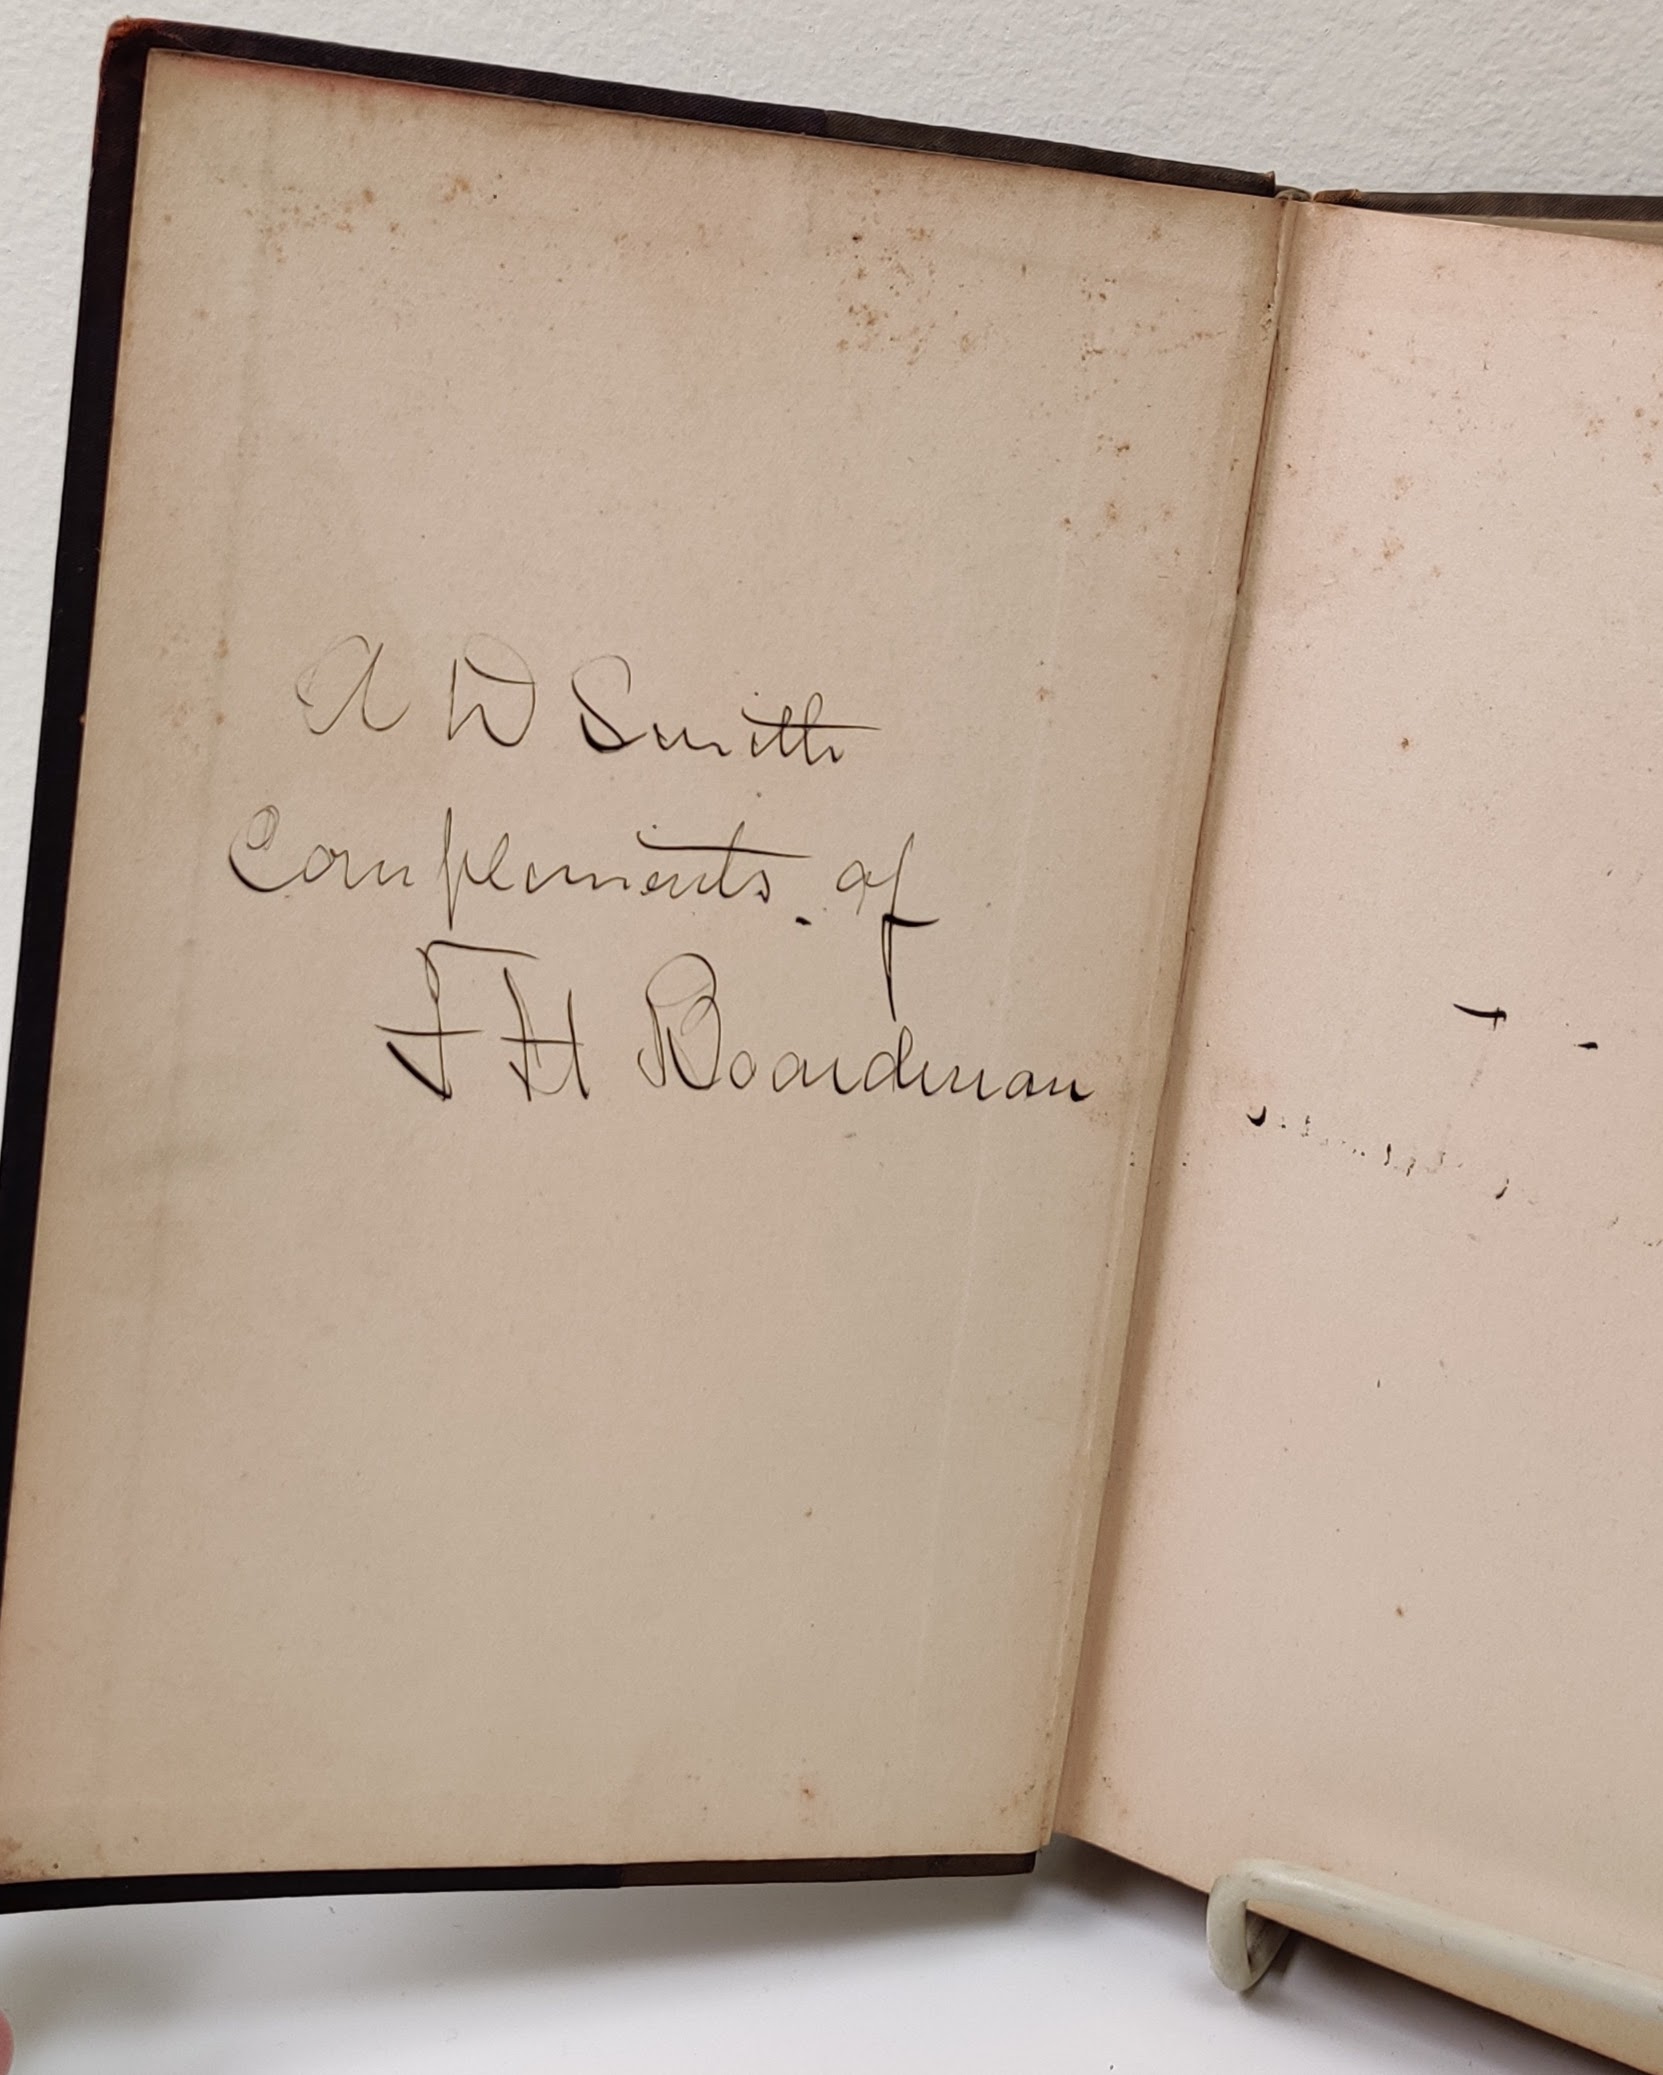 A D Smith
Complements of
F H Boardman